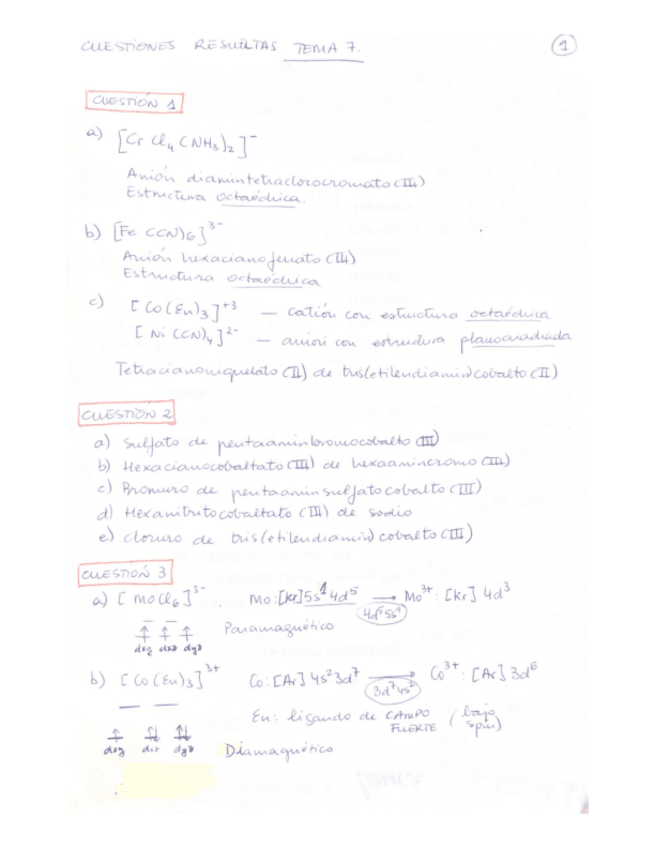 CUESTIONES RESUELTAS TEMA 7.
1
CUESTIÓN 1
a) [Cr Cl4 (NH3)2]⁻
Anión diamintetraclorocromato (III)
Estructura octaédrica.
b) [Fe (CN)6]³⁻
Anión hexacianoferrato (III)
Estructura octaédrica
c) [Co(En)3]⁺³ — catión con estructura octaédrica
[Ni (CN)4]²⁻ — anión con estructura planocuadrada
Tetracianoniquelato (II) de tris(etilendiamin)cobalto (II)
CUESTIÓN 2
a) Sulfato de pentaaminbromocobalto (III)
b) Hexacianocobaltato (III) de hexaamincromo (III)
c) Bromuro de pentaaminsulfatocobalto (III)
d) Hexanitritocobaltato (III) de sodio
e) Cloruro de tris(etilendiamin) cobalto (III)
CUESTIÓN 3
a) [MoCl6]³⁻. Mo: [Kr] 5s¹ 4d⁵ → Mo³⁺: [Kr] 4d³
4d⁵5s¹
Paramagnético
dxy dxz dyz
b) [Co(En)3]³⁺ Co: [Ar] 4s² 3d⁷ → Co³⁺: [Ar] 3d⁶
3d⁷4s²
En: ligando de CAMPO FUERTE (bajo spin)
dxy dxz dyz
Diamagnético